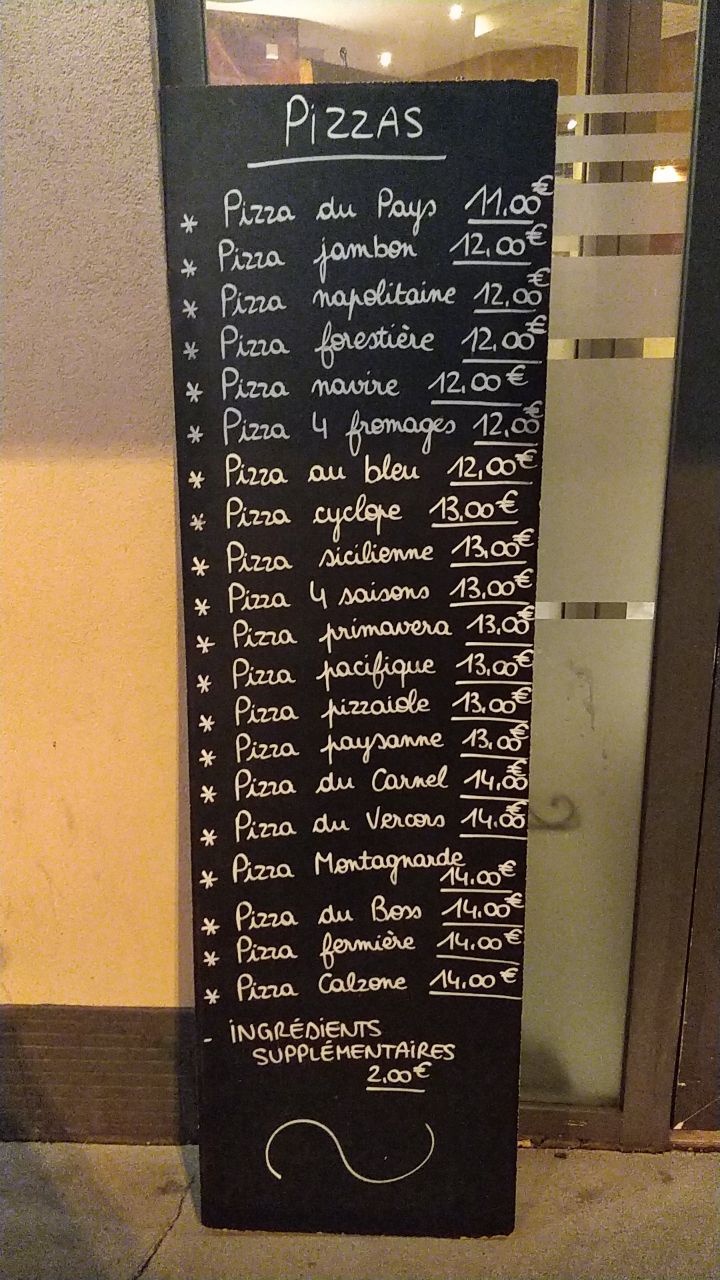 PiZZAS
* Pizza du Pays 11.00€
* Pizza jambon 12,00€
* Pizza napolitaine 12,00€
* Pizza forestière 12,00€
* Pizza navire 12,00€
* Pizza 4 fromages 12,00€
* Pizza au bleu 12,00€
* Pizza cyclope 13,00€
* Pizza sicilienne 13,00€
* Pizza 4 saisons 13,00€
* Pizza primavera 13,00€
* Pizza pacifique 13,00€
* Pizza pizzaiole 13,00€
* Pizza paysanne 13,00€
* Pizza du Carnel 14,00€
* Pizza du Vercors 14,00€
* Pizza Montagnarde
14.00€
* Pizza du Boss 14.00€
* Pizza fermière 14.00€
* Pizza Calzone 14.00€
- iNGRÉDiENTS
SUPPLÉMENTAiRES
2,00€